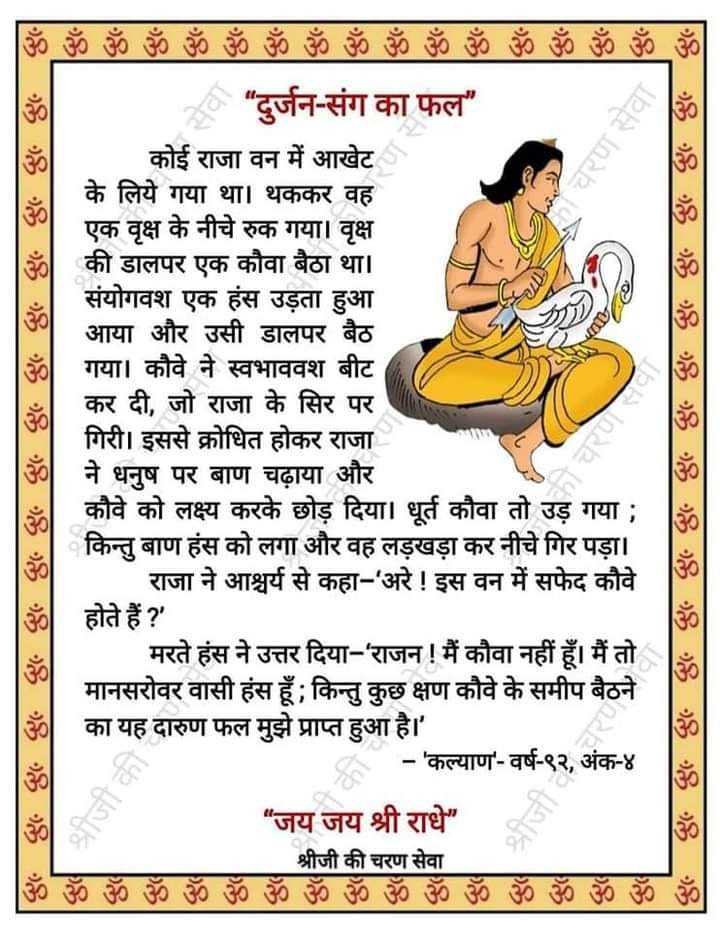 ॐ ॐ ॐ ॐ ॐ ॐ ॐ ॐ ॐ ॐ ॐ ॐ ॐ ॐ ॐ ॐ ॐ
“दुर्जन-संग का फल”
कोई राजा वन में आखेट
के लिये गया था। थककर वह
एक वृक्ष के नीचे रुक गया। वृक्ष
की डालपर एक कौवा बैठा था।
संयोगवश एक हंस उड़ता हुआ
आया और उसी डालपर बैठ
गया। कौवे ने स्वभाववश बीट
कर दी, जो राजा के सिर पर
गिरी। इससे क्रोधित होकर राजा
ने धनुष पर बाण चढ़ाया और
कौवे को लक्ष्य करके छोड़ दिया। धूर्त कौवा तो उड़ गया ;
किन्तु बाण हंस को लगा और वह लड़खड़ा कर नीचे गिर पड़ा।
राजा ने आश्चर्य से कहा–‘अरे ! इस वन में सफेद कौवे
होते हैं ?’
मरते हंस ने उत्तर दिया–‘राजन ! मैं कौवा नहीं हूँ। मैं तो
मानसरोवर वासी हंस हूँ ; किन्तु कुछ क्षण कौवे के समीप बैठने
का यह दारुण फल मुझे प्राप्त हुआ है।’
– 'कल्याण'- वर्ष-९२, अंक-४
“जय जय श्री राधे”
श्रीजी की चरण सेवा
ॐ ॐ ॐ ॐ ॐ ॐ ॐ ॐ ॐ ॐ ॐ ॐ ॐ ॐ ॐ ॐ ॐ